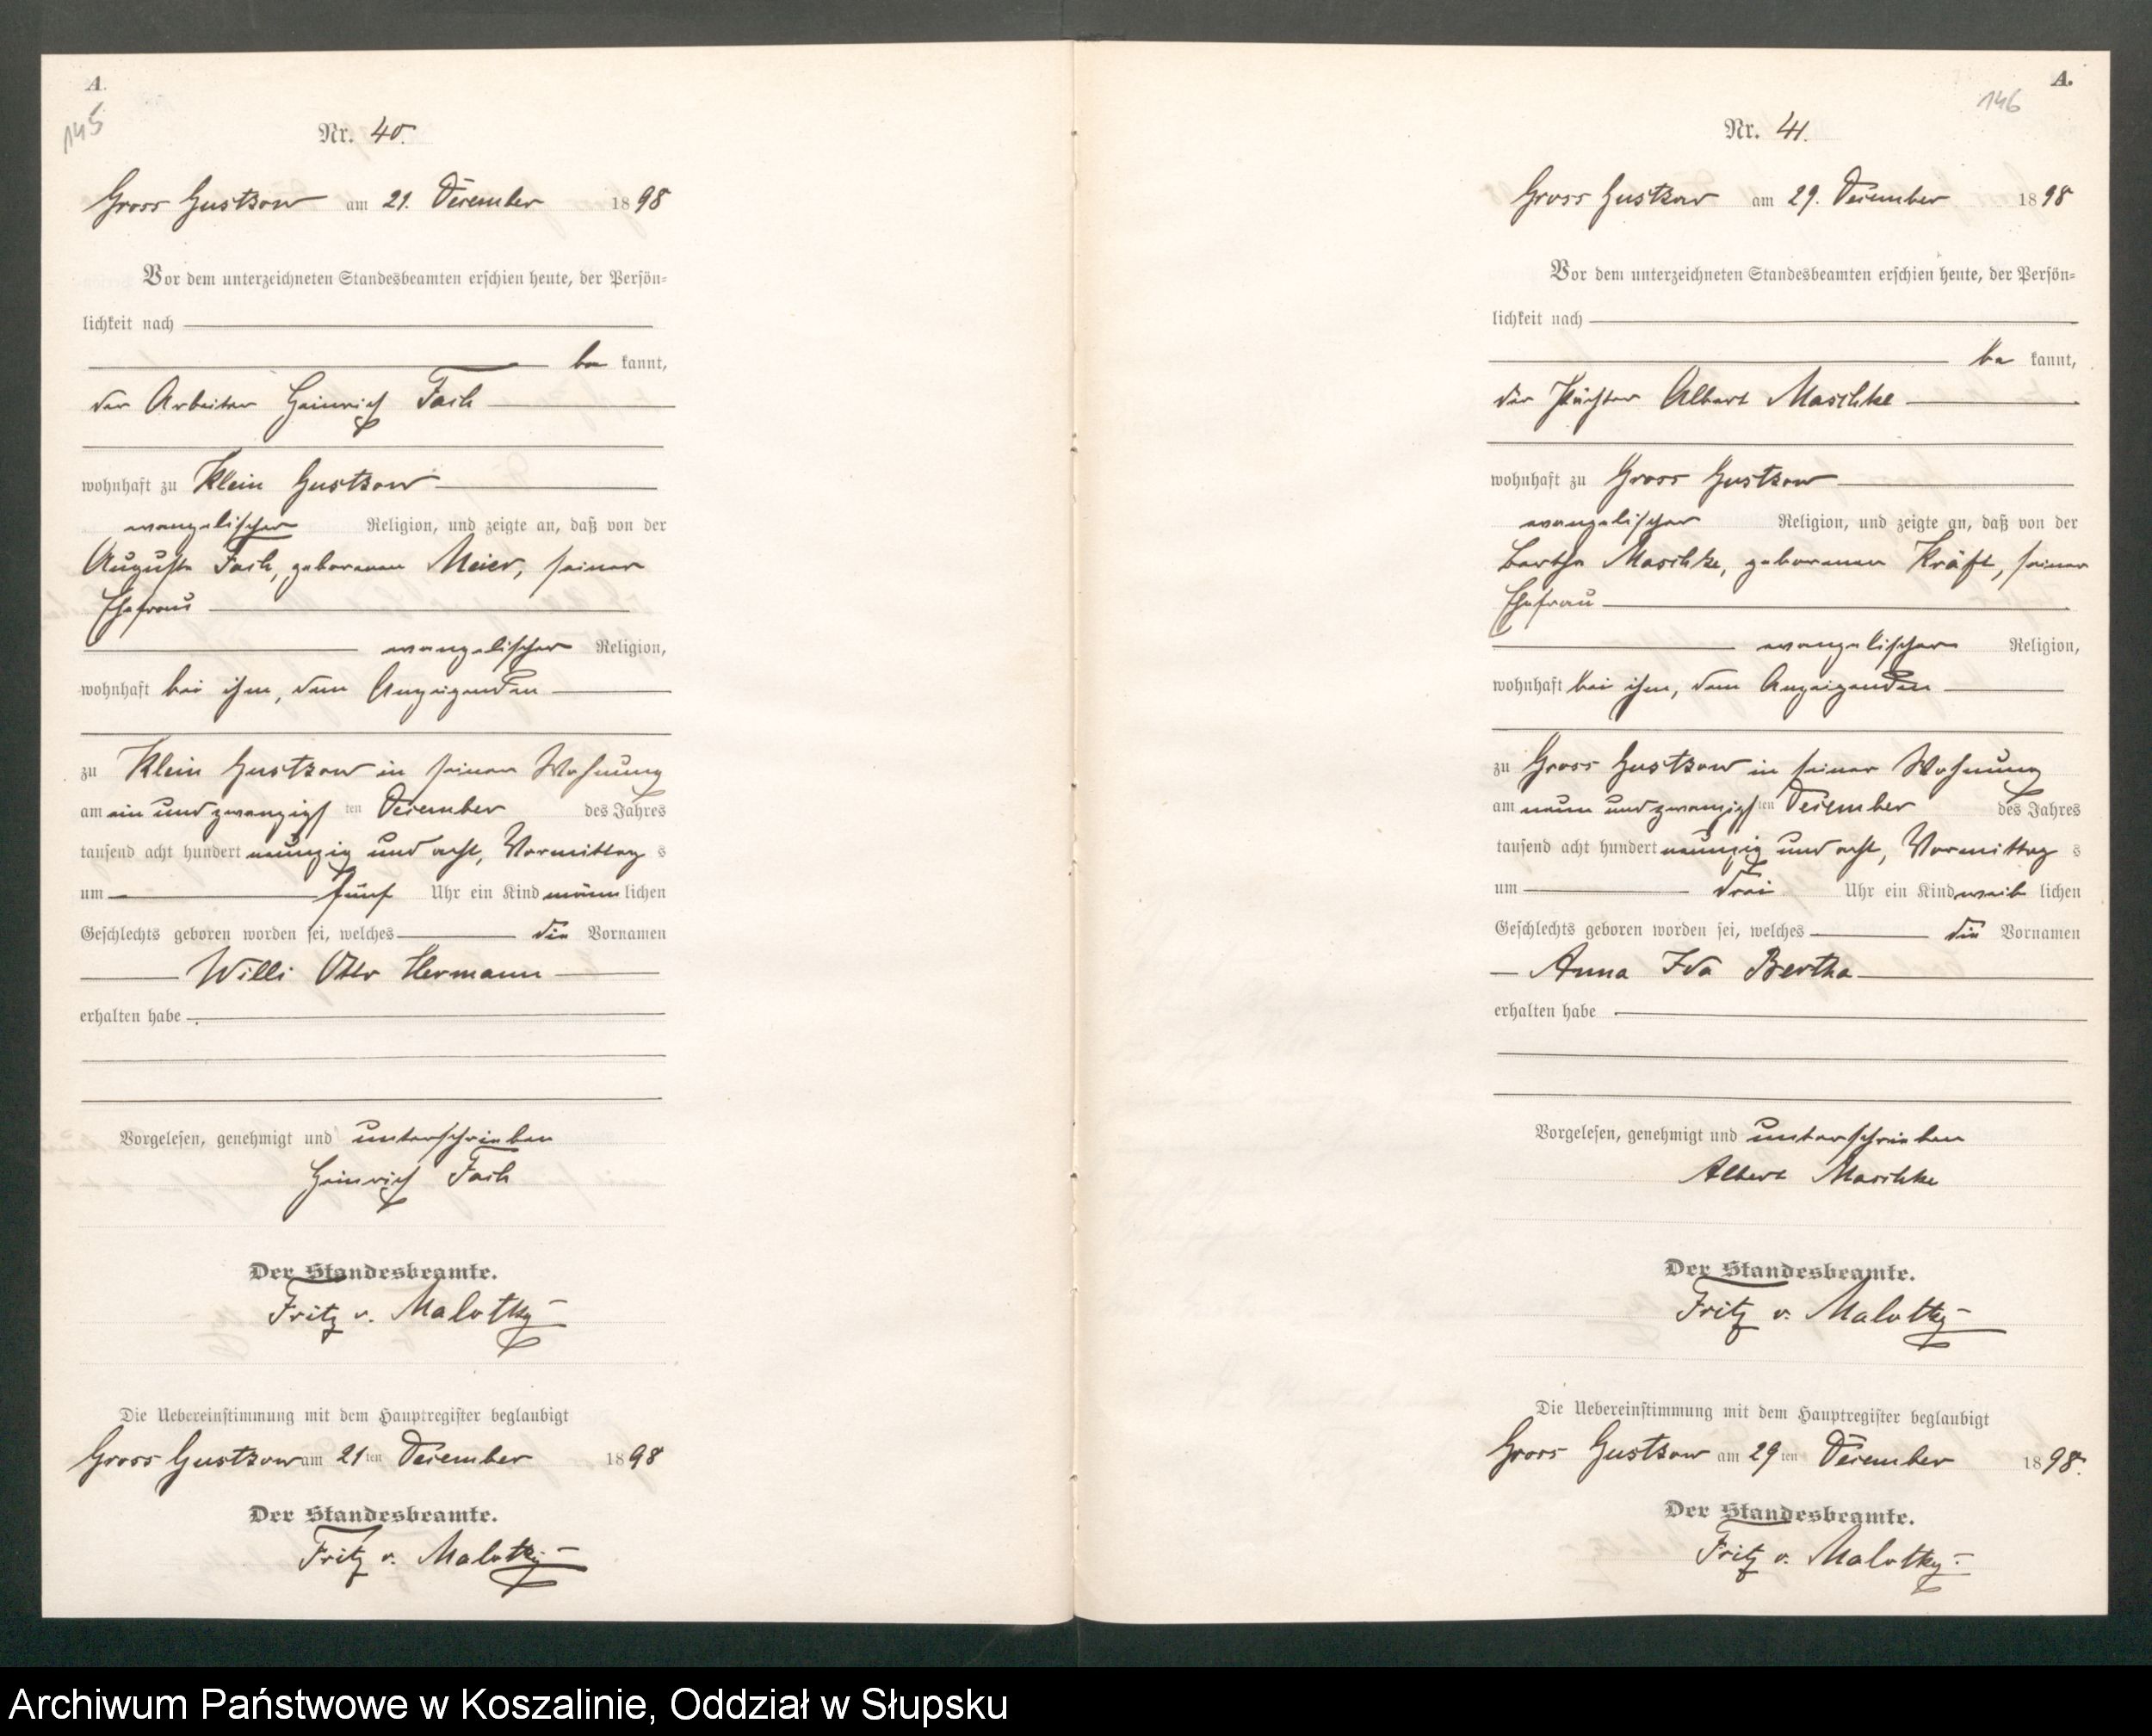 A.
145
Nr. 40.
Gross Gustkow am 21. December 1898
Vor dem unterzeichneten Standesbeamten erschien heute, der Persön=
lichkeit nach
be kannt,
der Arbeiter Heinrich
wohnhaft zu Klein Gustkow
evangelischer Religion, und zeigte an, daß von der
Auguste geborenen Meier, seiner
Ehefrau
evangelischer Religion,
wohnhaft bei ihm, dem Anzeigenden
zu Klein Gustkow in seiner Wohnung
am ein und zwanzigs ten December des Jahres
tausend acht hundert neunzig und acht, Vormittag s
um fünf Uhr ein Kind männ lichen
Geschlechts geboren worden sei, welches die Vornamen
Willi Otto Hermann
erhalten habe.
Vorgelesen, genehmigt und unterschrieben
Heinrich
Der Standesbeamte.
Fritz v. Malotky
Die Uebereinstimmung mit dem Hauptregister beglaubigt
Gross Gustkow am 21ten December 1898
Der Standesbeamte.
Fritz v. Malotky
A.
146
Nr. 41.
Gross Gustkow am 29. December 1898
Vor dem unterzeichneten Standesbeamten erschien heute, der Persön=
lichkeit nach
be kannt,
der Pächter Albert Maschke
wohnhaft zu Gross Gustkow
evangelischer Religion, und zeigte an, daß von der
Bertha Maschke, geborenen Kräft, seiner
Ehefrau
evangelischer Religion,
wohnhaft bei ihm, dem Anzeigenden
zu Gross Gustkow in seiner Wohnung
am neun und zwanzigs ten December des Jahres
tausend acht hundert neunzig und acht, Vormittag s
um drei Uhr ein Kind weib lichen
Geschlechts geboren worden sei, welches die Vornamen
Anna Ida Bertha
erhalten habe.
Vorgelesen, genehmigt und unterschrieben
Albert Maschke
Der Standesbeamte.
Fritz v. Malotky
Die Uebereinstimmung mit dem Hauptregister beglaubigt
Gross Gustkow am 29ten December 1898.
Der Standesbeamte.
Fritz v. Malotky
Archiwum Państwowe w Koszalinie, Oddział w Słupsku